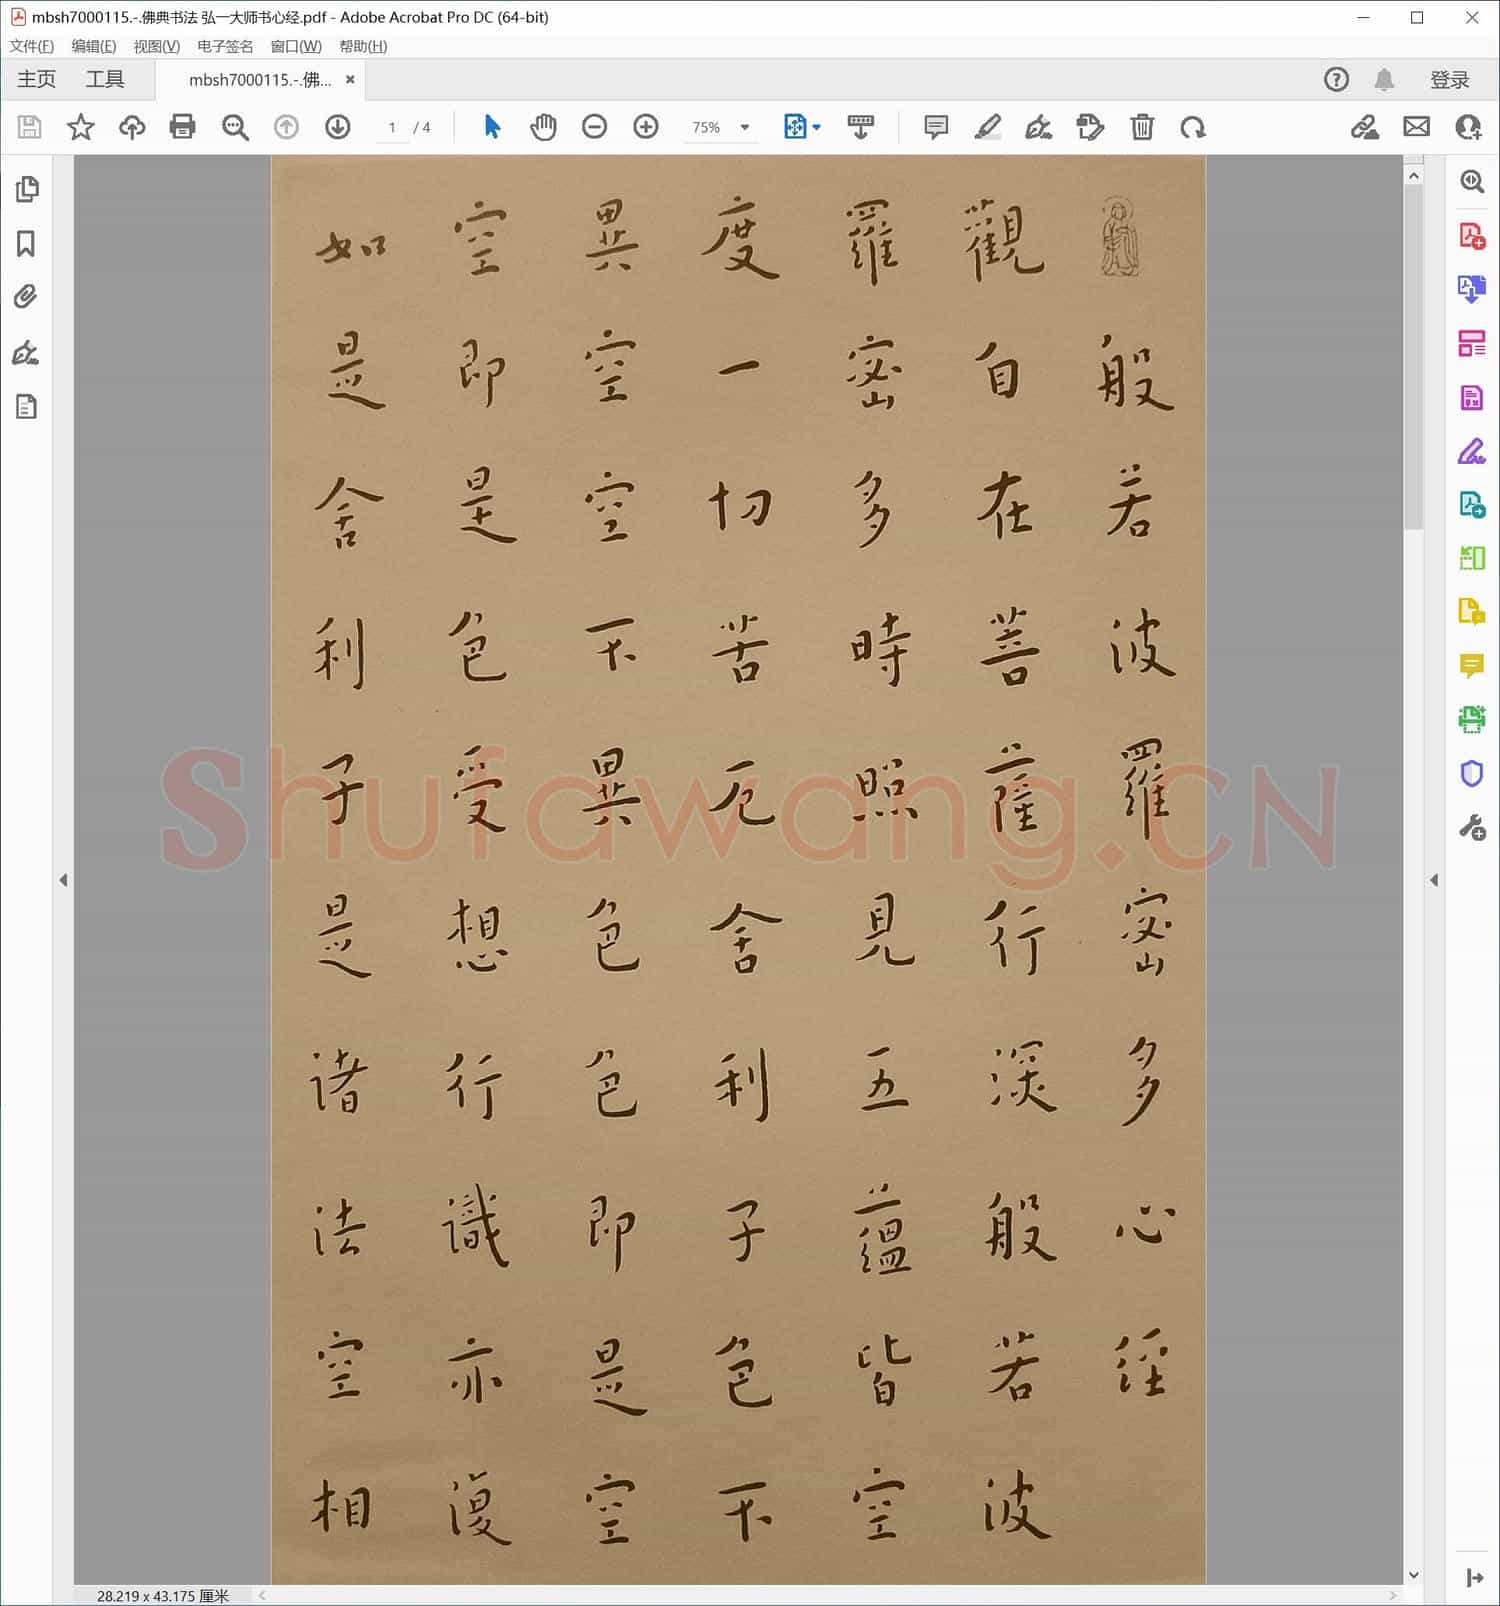 mbsh7000115.-.佛典书法 弘一大师书心经.pdf - Adobe Acrobat Pro DC (64-bit)
文件(F) 编辑(E) 视图(V) 电子签名 窗口(W) 帮助(H)
主页 工具 mbsh7000115.-.佛... × 登录
1 / 4 75%
般若波羅密多心經
觀自在菩薩行深般若波
羅密多時照見五蘊皆空
度一切苦厄舍利子色不
異空空不異色色即是空
空即是色受想行識亦復
如是舍利子是諸法空相
Shufawang.CN
28.219 x 43.175 厘米